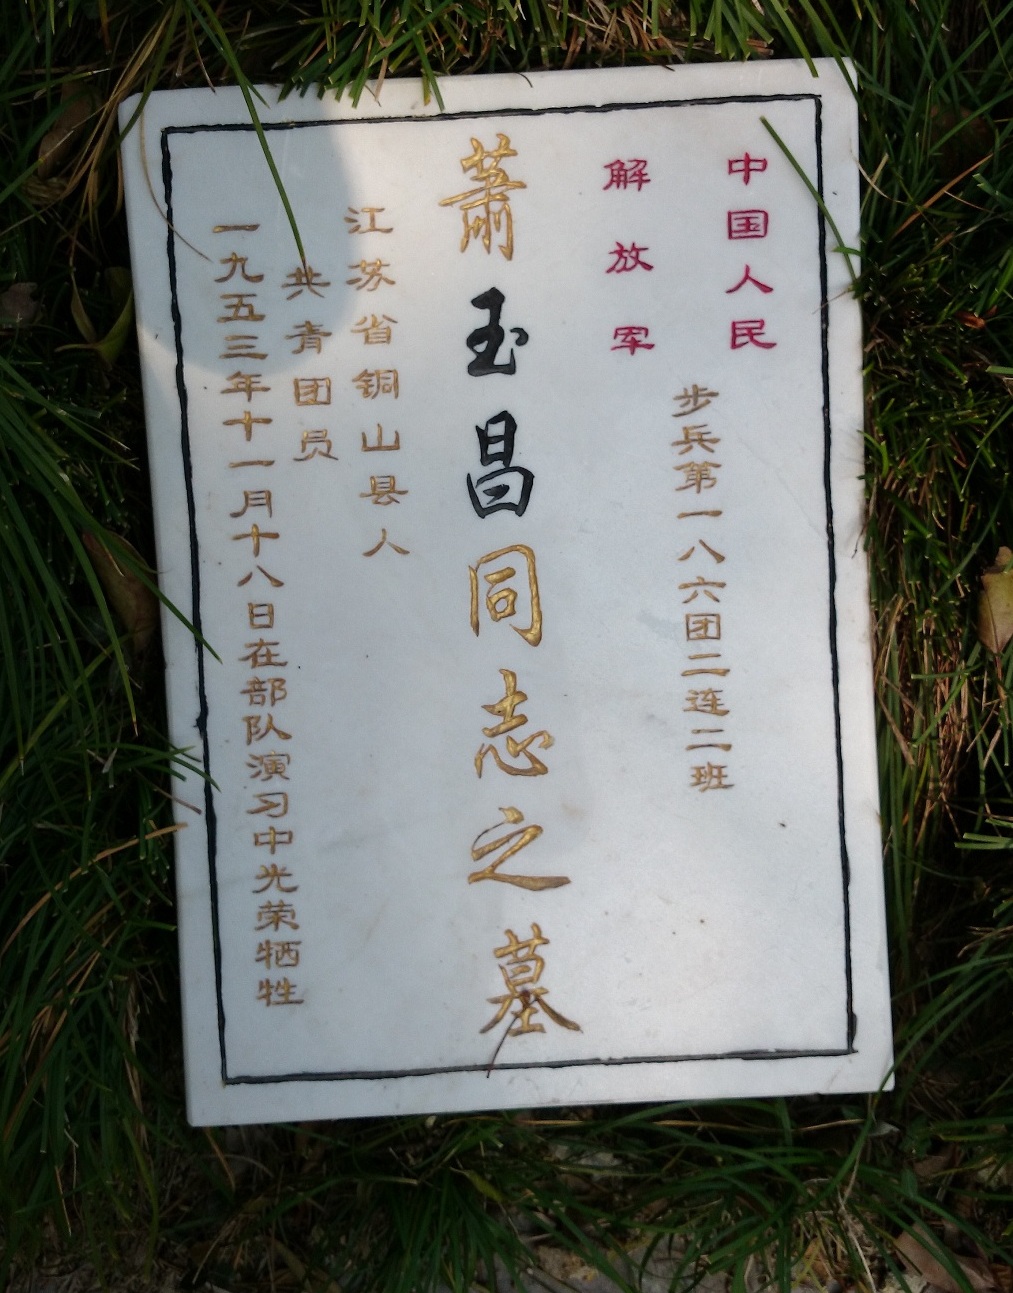 中国人民
解放军
步兵第一八六团二连二班
萧玉昌同志之墓
江苏省铜山县人
共青团员
一九五三年十一月十八日在部队演习中光荣牺牲